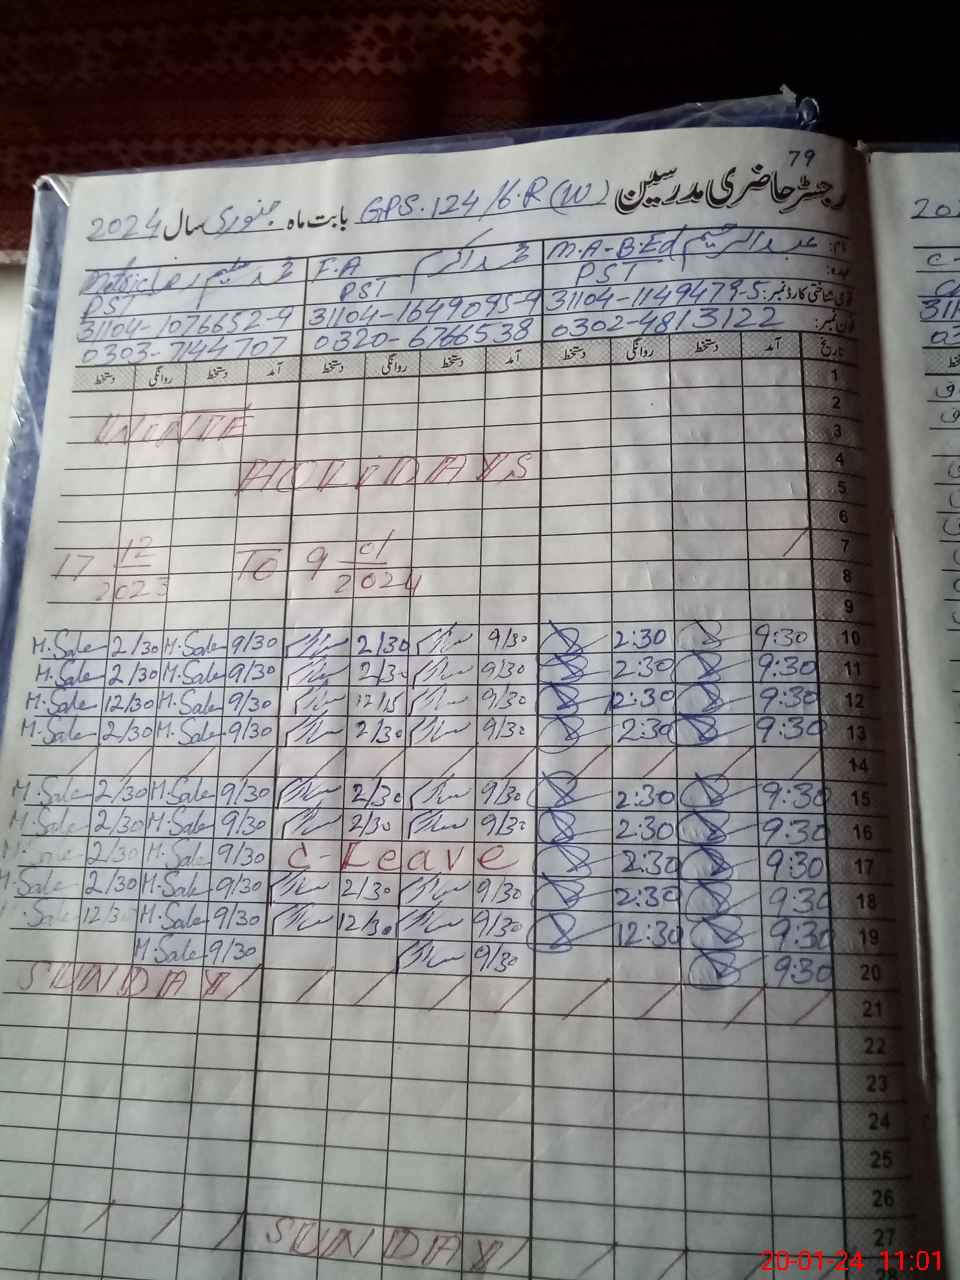 79
رجسٹر حاضری مدرسین GPS. 124/6.R(W) بابت ماہ جنوری سال 2024
نام: M.A-B.Ed F.A Matric
عہدہ: PST PST PST
قومی شناختی کارڈ نمبر: 31104-1149479-5 31104-1649095-9 31104-1076652-9
فون نمبر: 0302-4813122 0320-6766538 0303-7144707
تاریخ آمد دستخط روانگی دستخط آمد دستخط روانگی دستخط آمد دستخط روانگی دستخط
1
2
3 WINTE
4 HOLIDAYS
5
6
7
8 17 12/2023 To 9 01/2024
9
M.Sale 2/30 M.Sale 9/30 2/30 9/30 2:30 9:30 10
M.Sale 2/30 M.Sale 9/30 2/30 9/30 2:30 9:30 11
M.Sale 12/30 M.Sale 9/30 12/15 9/30 12:30 9:30 12
M.Sale 2/30 M.Sale 9/30 2/30 9/30 2:30 9:30 13
14
M.Sale 2/30 M.Sale 9/30 2/30 9/30 2:30 9:30 15
M.Sale 2/30 M.Sale 9/30 2/30 9/30 2:30 9:30 16
2/30 M.Sale 9/30 C-Leave 2:30 9:30 17
M.Sale 2/30 M.Sale 9/30 2/30 9/30 2:30 9:30 18
Sale 12/30 M.Sale 9/30 12/30 9/30 12:30 9:30 19
M.Sale 9/30 9/30 9:30 20
SUNDAY 21
22
23
24
25
26
SUNDAY 27
20-01-24 11:01